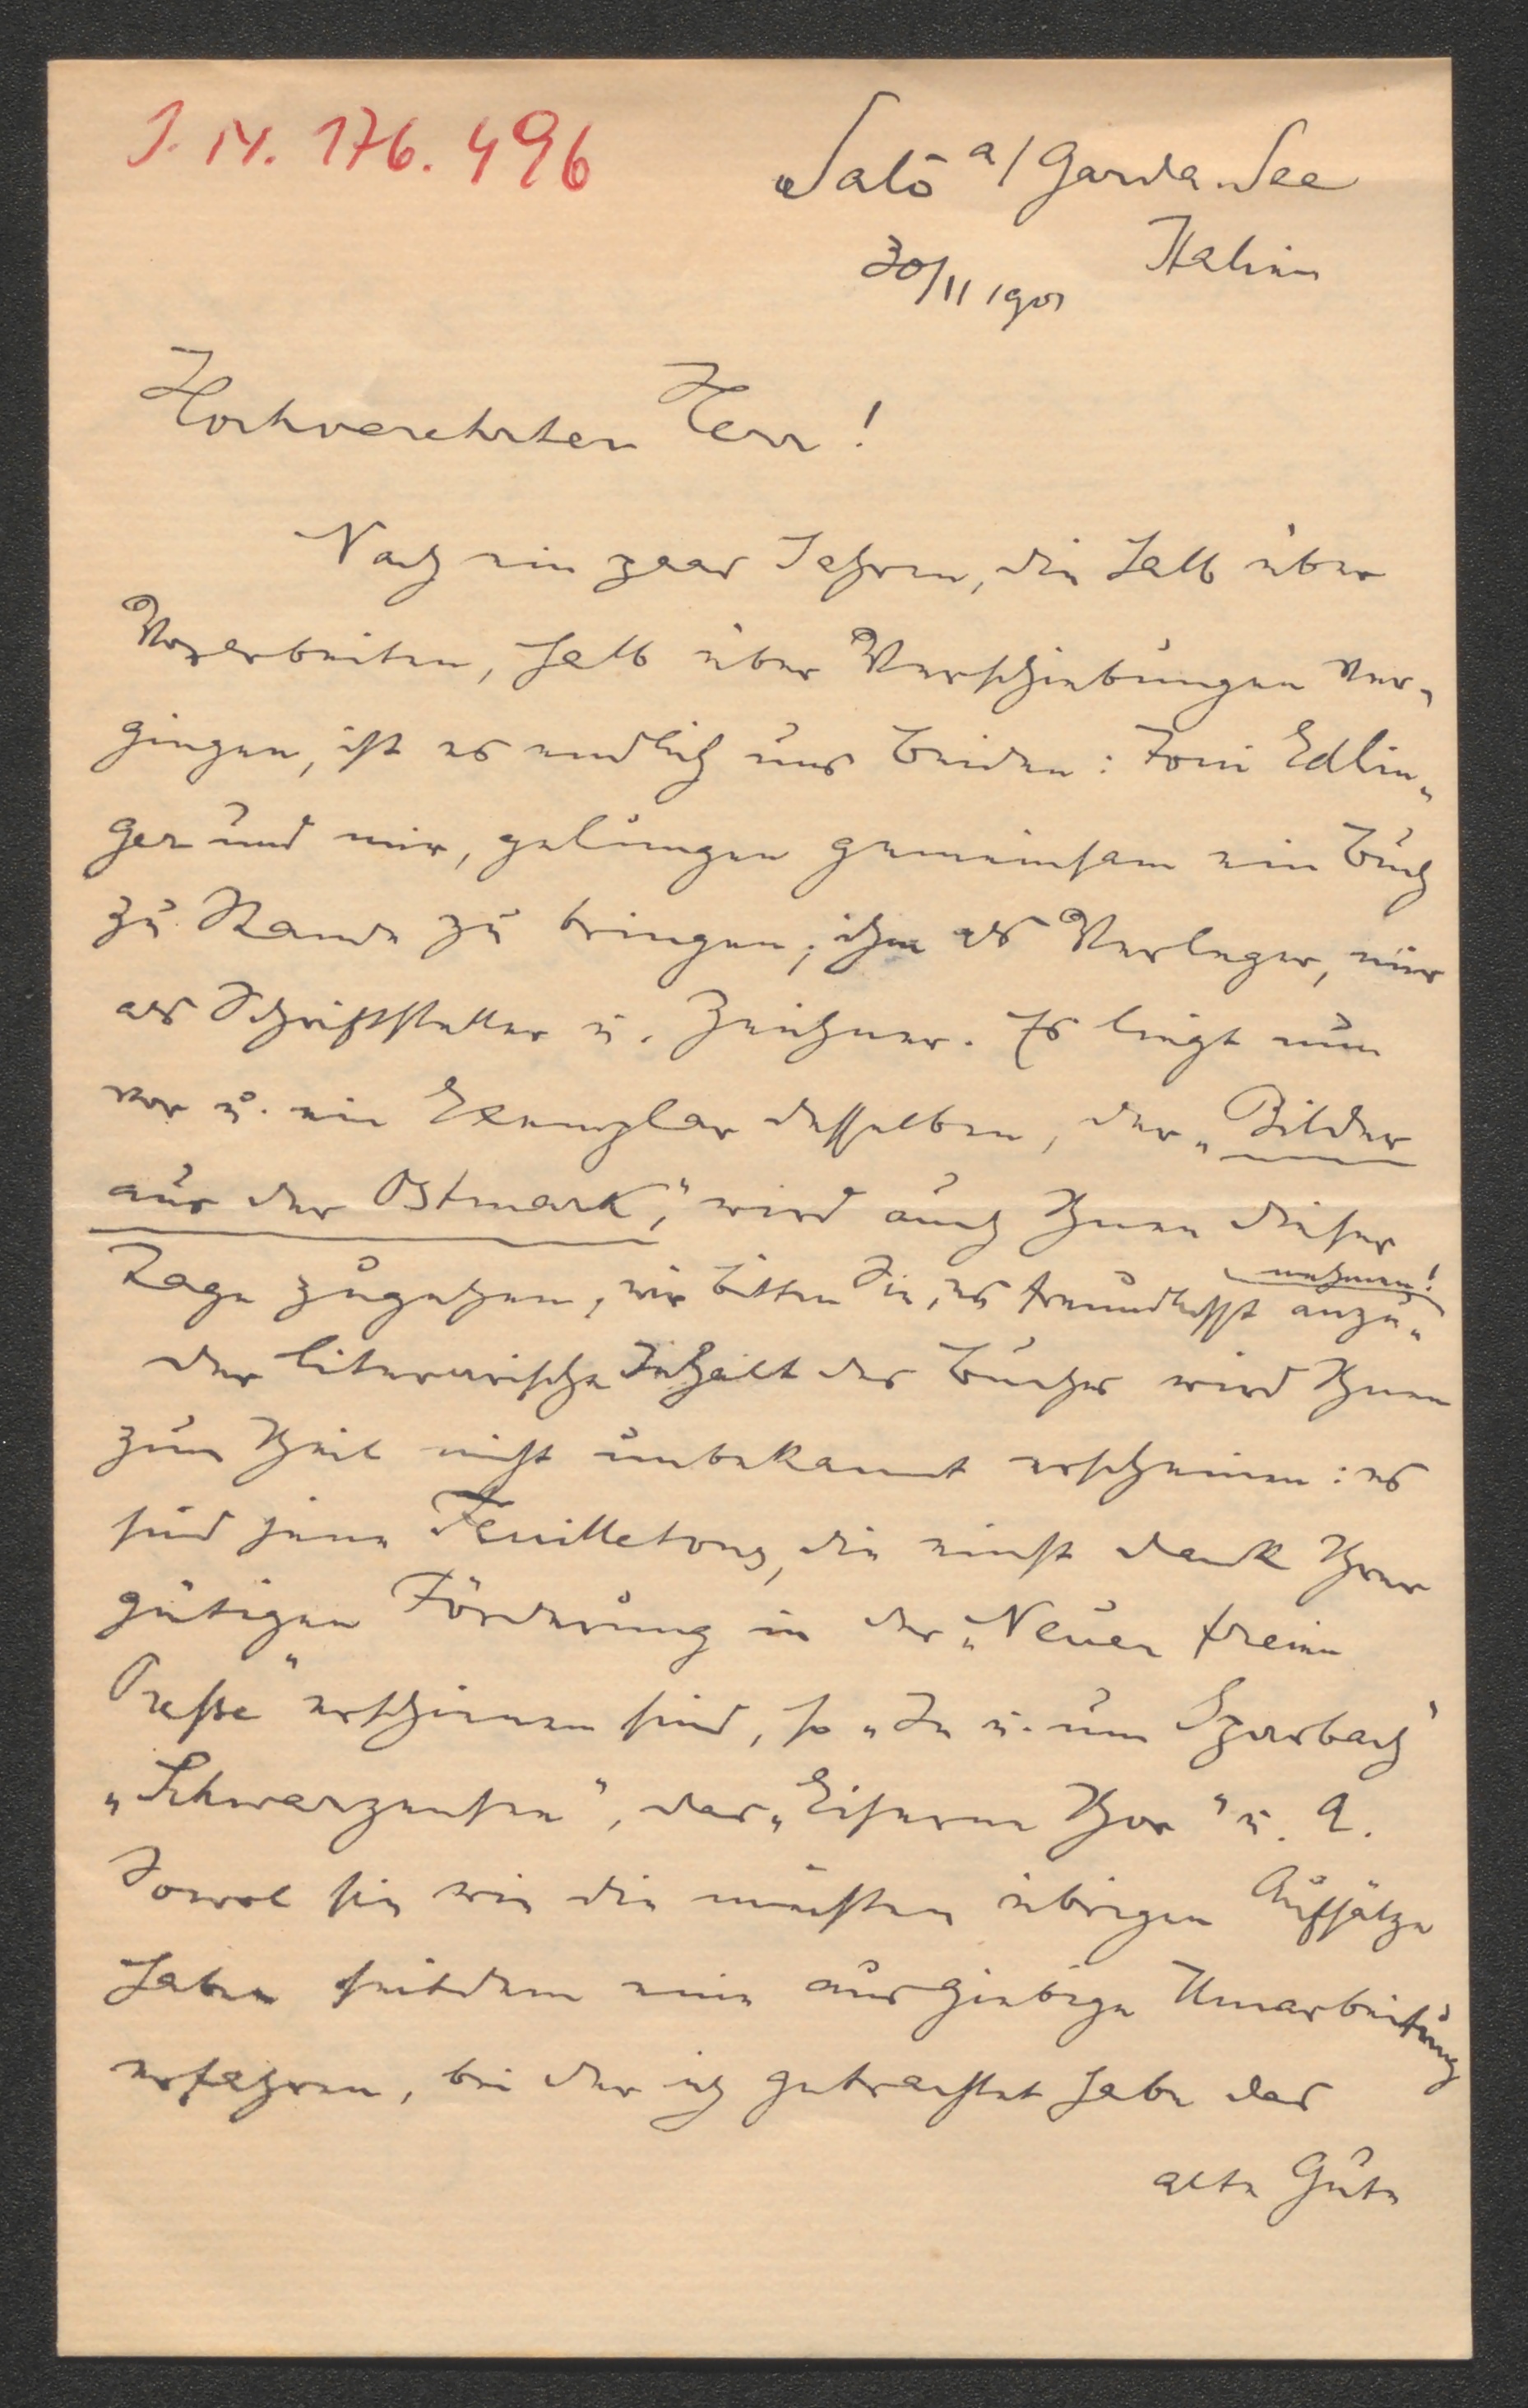 J. N. 176.496
Salò a/ Garda-See
Italien
30/11 1901
Hochverehrter Herr!
Nach ein paar Jahren, die halb über
Vorarbeiten, halb über Verschiebungen ver-
gingen, ist es endlich uns Beiden: Toni Edlin-
ger und mir, gelungen gemeinsam ein Buch
zu Stande zu bringen; ihm als Verleger, mir
als Schriftsteller u. Zeichner. Es liegt nun
vor u. ein Exemplar desselben, der „Bilder
aus der Ostmark“, wird auch Ihnen dieser
Tage zugehen, wir bitten Sie, es freundlichst anzu-
nehmen!
Der literarische Inhalt des Buches wird Ihnen
zum Theil nicht unbekannt erscheinen: es
sind jene Feuilletons, die einst dank Ihrer
gütigen Förderung in der „Neuen freien
Presse“ erschienen sind, so „In u. um Sparbach“
„Schwarzensee“, das „Eiserne Thor“ u. A.
Sowol sie wie die meisten übrigen Aufsätze
haben seitdem eine ausgiebige Umarbeitung
erfahren, bei der ich getrachtet habe das
alte Gute